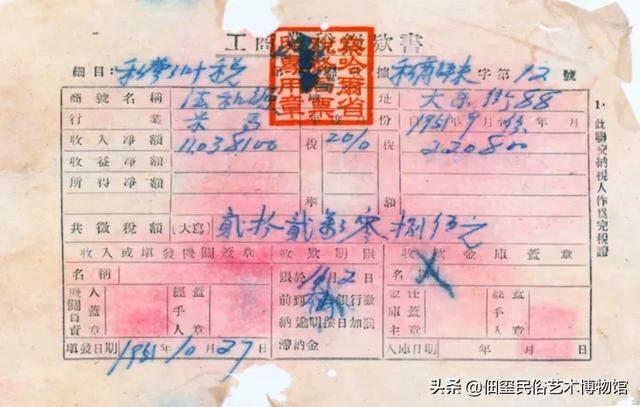 工商業税繳款書
察哈爾省税務局票照專用章
細目： 據 字第12號
商號名稱 址 大東街88
行業 自1951年9月 年 月
收入淨額 11.038100 税 2% 220800
收益淨額
所得淨額 率 額
共徵税額 (大寫) 貳拾貳萬零捌佰元
收入或填發機關蓋章 收款期限 收款金庫蓋章
名稱 限於11月2日 名
機關負責 人蓋章 經手人 蓋章 前到 銀行繳納逾期按日加罰滯納金 主 蓋章 經手人 蓋章
填發日期 1951年10月27日 入庫日期 年 月 日
1.此聯交納税人作為完税證
頭条 @佃璽民俗艺术博物馆